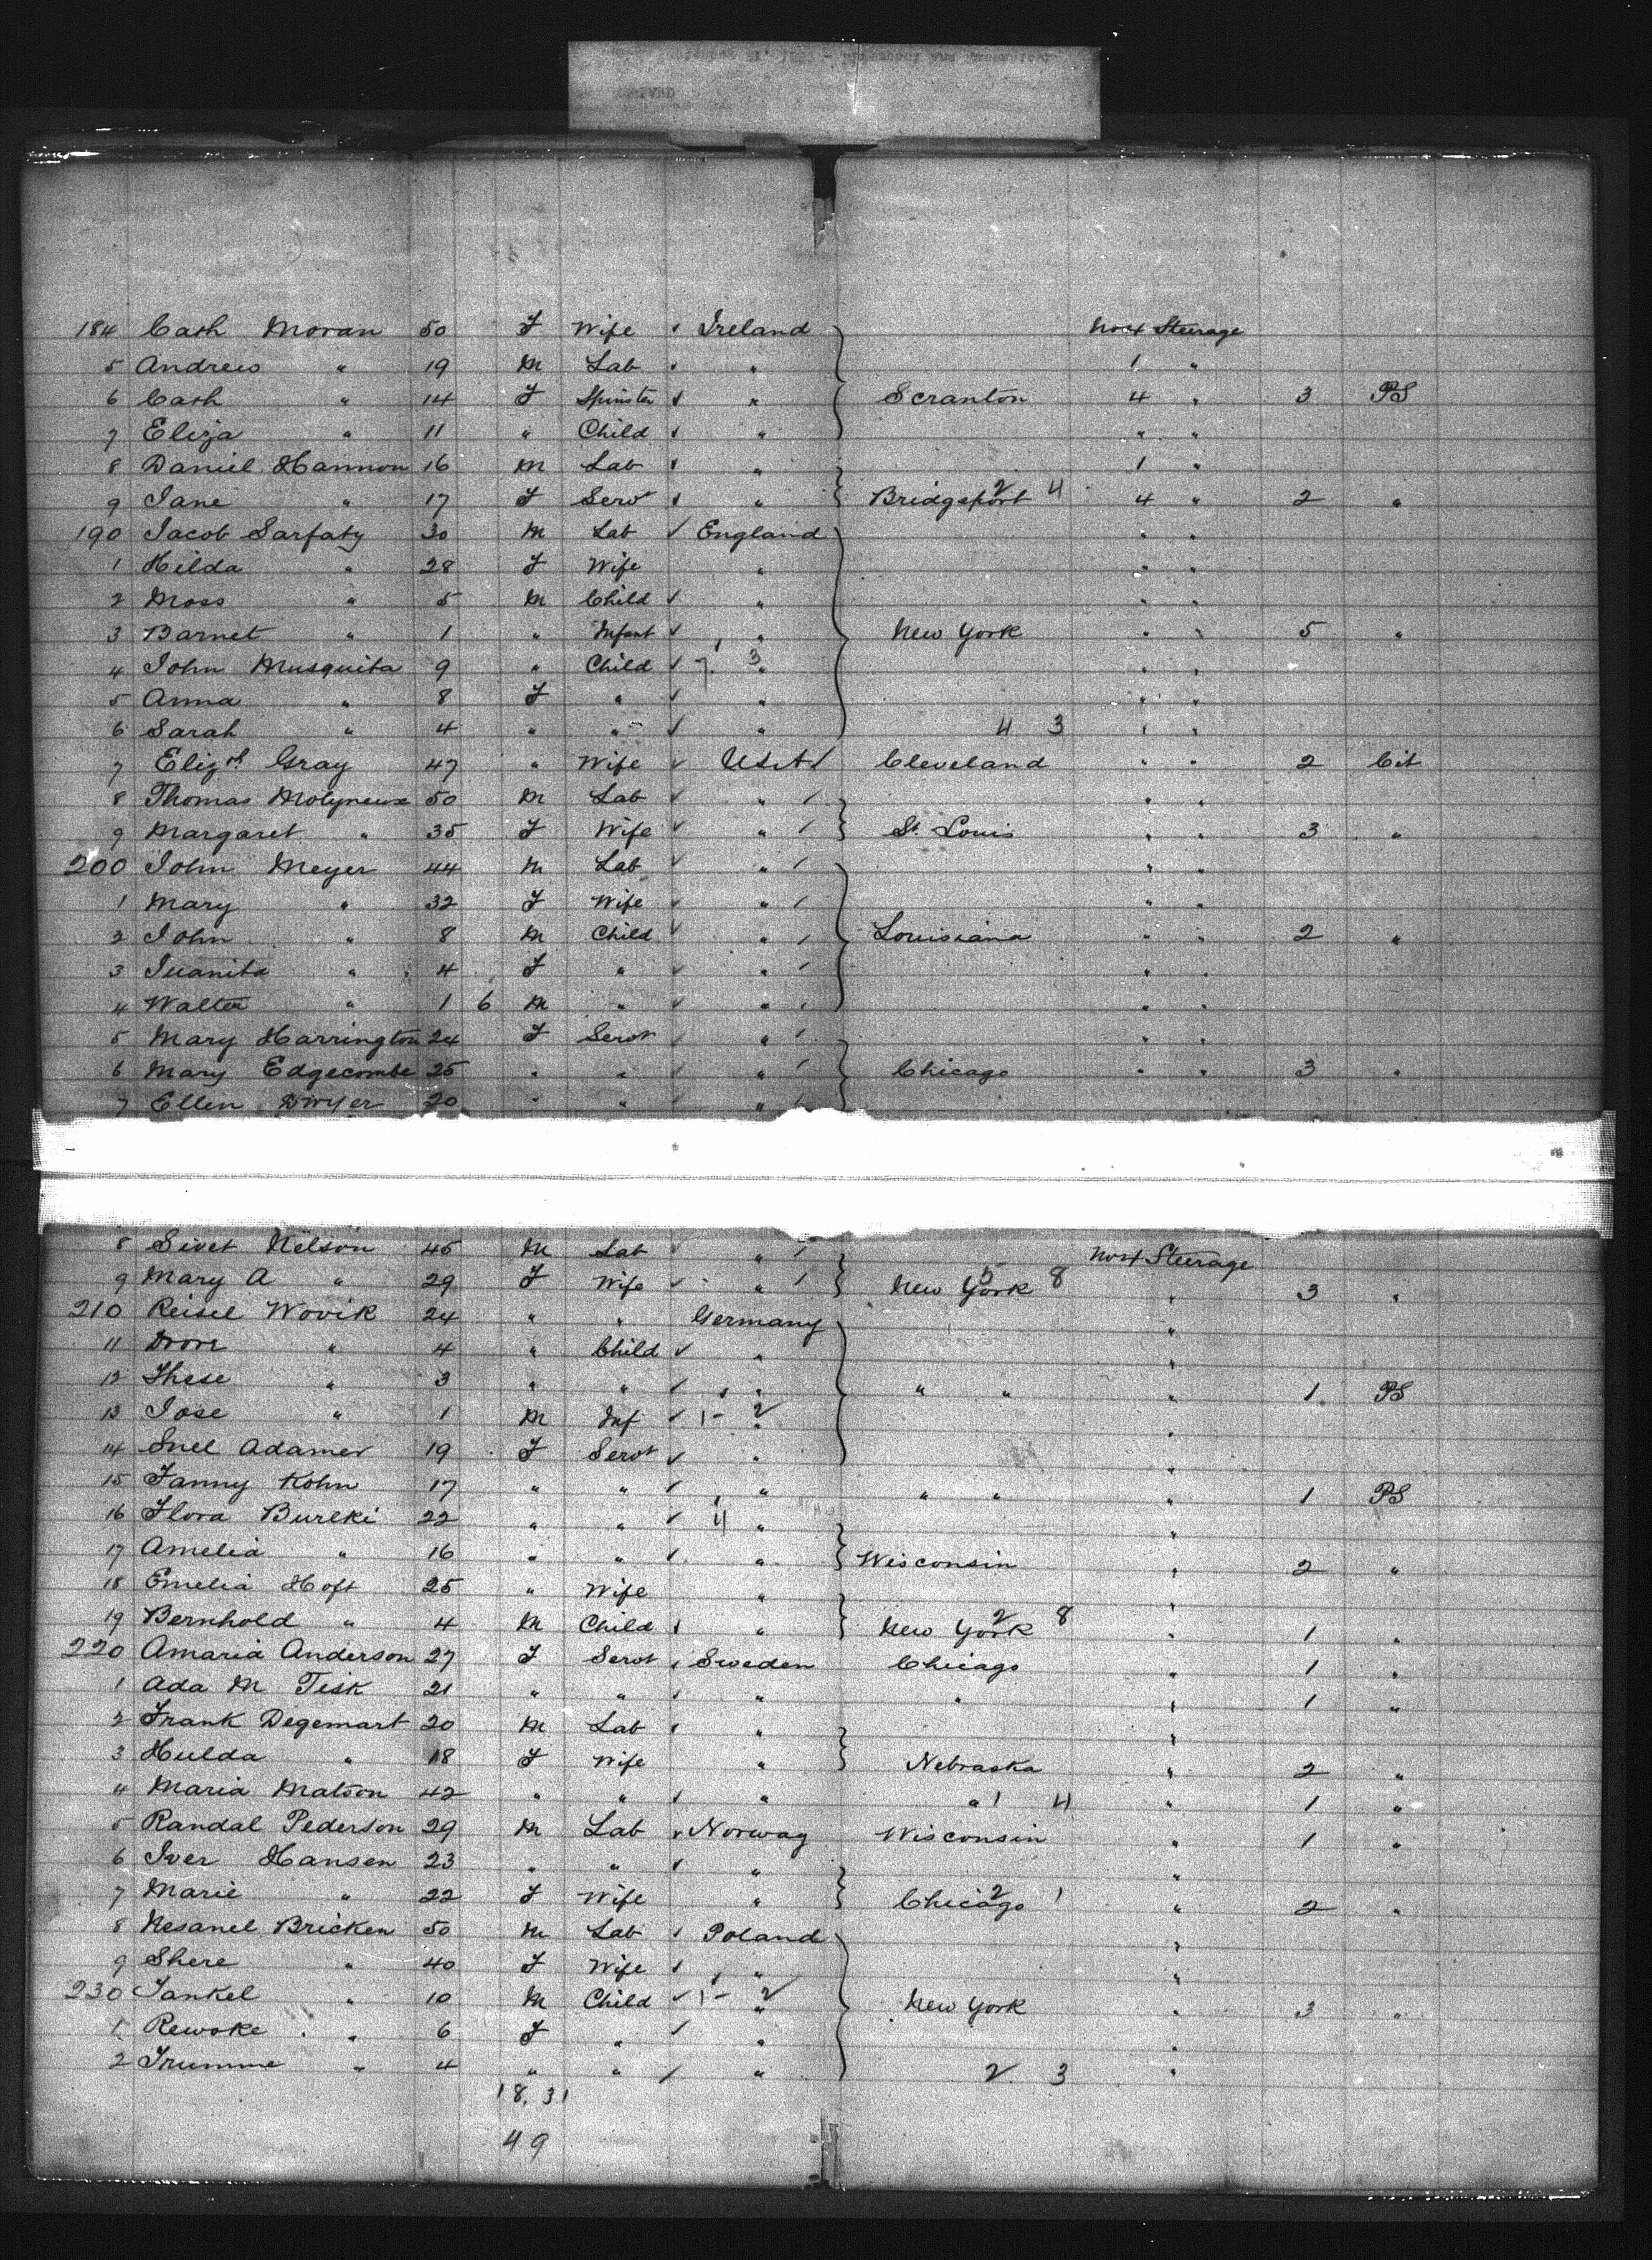 184 Cath Moran 50 F Wife Ireland No 4 Steerage
5 Andrew " 19 M Lab " 1 "
6 Cath " 14 F Spinster " Scranton 4 " 3 PS
7 Eliza " 11 " Child " " "
8 Daniel Hannon 16 M Lab " 1 "
9 Jane " 17 F Servt " Bridgeport 2 4 4 " 2 "
190 Jacob Sarfaty 30 M Lab England " "
1 Hilda " 28 F Wife " " "
2 Moss " 5 M Child " " "
3 Barnet " 1 " Infant " New York " " 5 "
4 John Musquita 9 " Child 7 3 " " "
5 Anna " 8 F " " " "
6 Sarah " 4 " " " 4 3 " "
7 Eliz th Gray 47 " Wife USA Cleveland " " 2 Cit
8 Thomas Molyneux 50 M Lab " " "
9 Margaret " 35 F Wife " St. Louis " " 3 "
200 John Meyer 44 M Lab " " "
1 Mary " 32 F Wife " " "
2 John " 8 M Child " Louisiana " " 2 "
3 Juanita " 4 F " " " "
4 Walter " 1 6 M " " " "
5 Mary Harrington 24 F Servt " " "
6 Mary Edgecombe 25 " " " Chicago " " 3 "
7 Ellen Dwyer 20 " " "
8 Sivet Nelson 45 M Lab " No 4 Steerage
9 Mary A " 29 F Wife " New York 5 8 " 3 "
210 Reisel Wovik 24 " " Germany "
11 " 4 " Child " "
12 These " 3 " " " " " " 1 PS
13 Jose " 1 M Inf 1 - 2 " "
14 Snel Adamer 19 F Servt " "
15 Fanny Kohn 17 " " " " " " 1 PS
16 Flora Burlki 22 " " 4 " "
17 Amelia " 16 " " " Wisconsin " 2 "
18 Emelia Hoft 25 " Wife " "
19 Bernhold " 4 M Child " New York 2 8 " 1 "
220 Amaria Anderson 27 F Servt Sweden Chicago " 1 "
1 Ada M Tisk 21 " " " " " 1 "
2 Frank Degemart 20 M Lab " "
3 Hulda " 18 F Wife " Nebraska " 2 "
4 Maria Matson 42 " " " " 1 4 " 1 "
5 Randal Pederson 29 M Lab Norway Wisconsin " 1 "
6 Iver Hansen 23 " " " "
7 Marie " 22 F Wife " Chicago 2 1 " 2 "
8 Nesanel Bricken 50 M Lab Poland "
9 Shere " 40 F Wife " "
230 Jankel " 10 M Child 1 - 2 " New York " 3 "
1 Rewoke " 6 F " " "
2 Trumme " 4 " " " 2 3 "
18.31
49